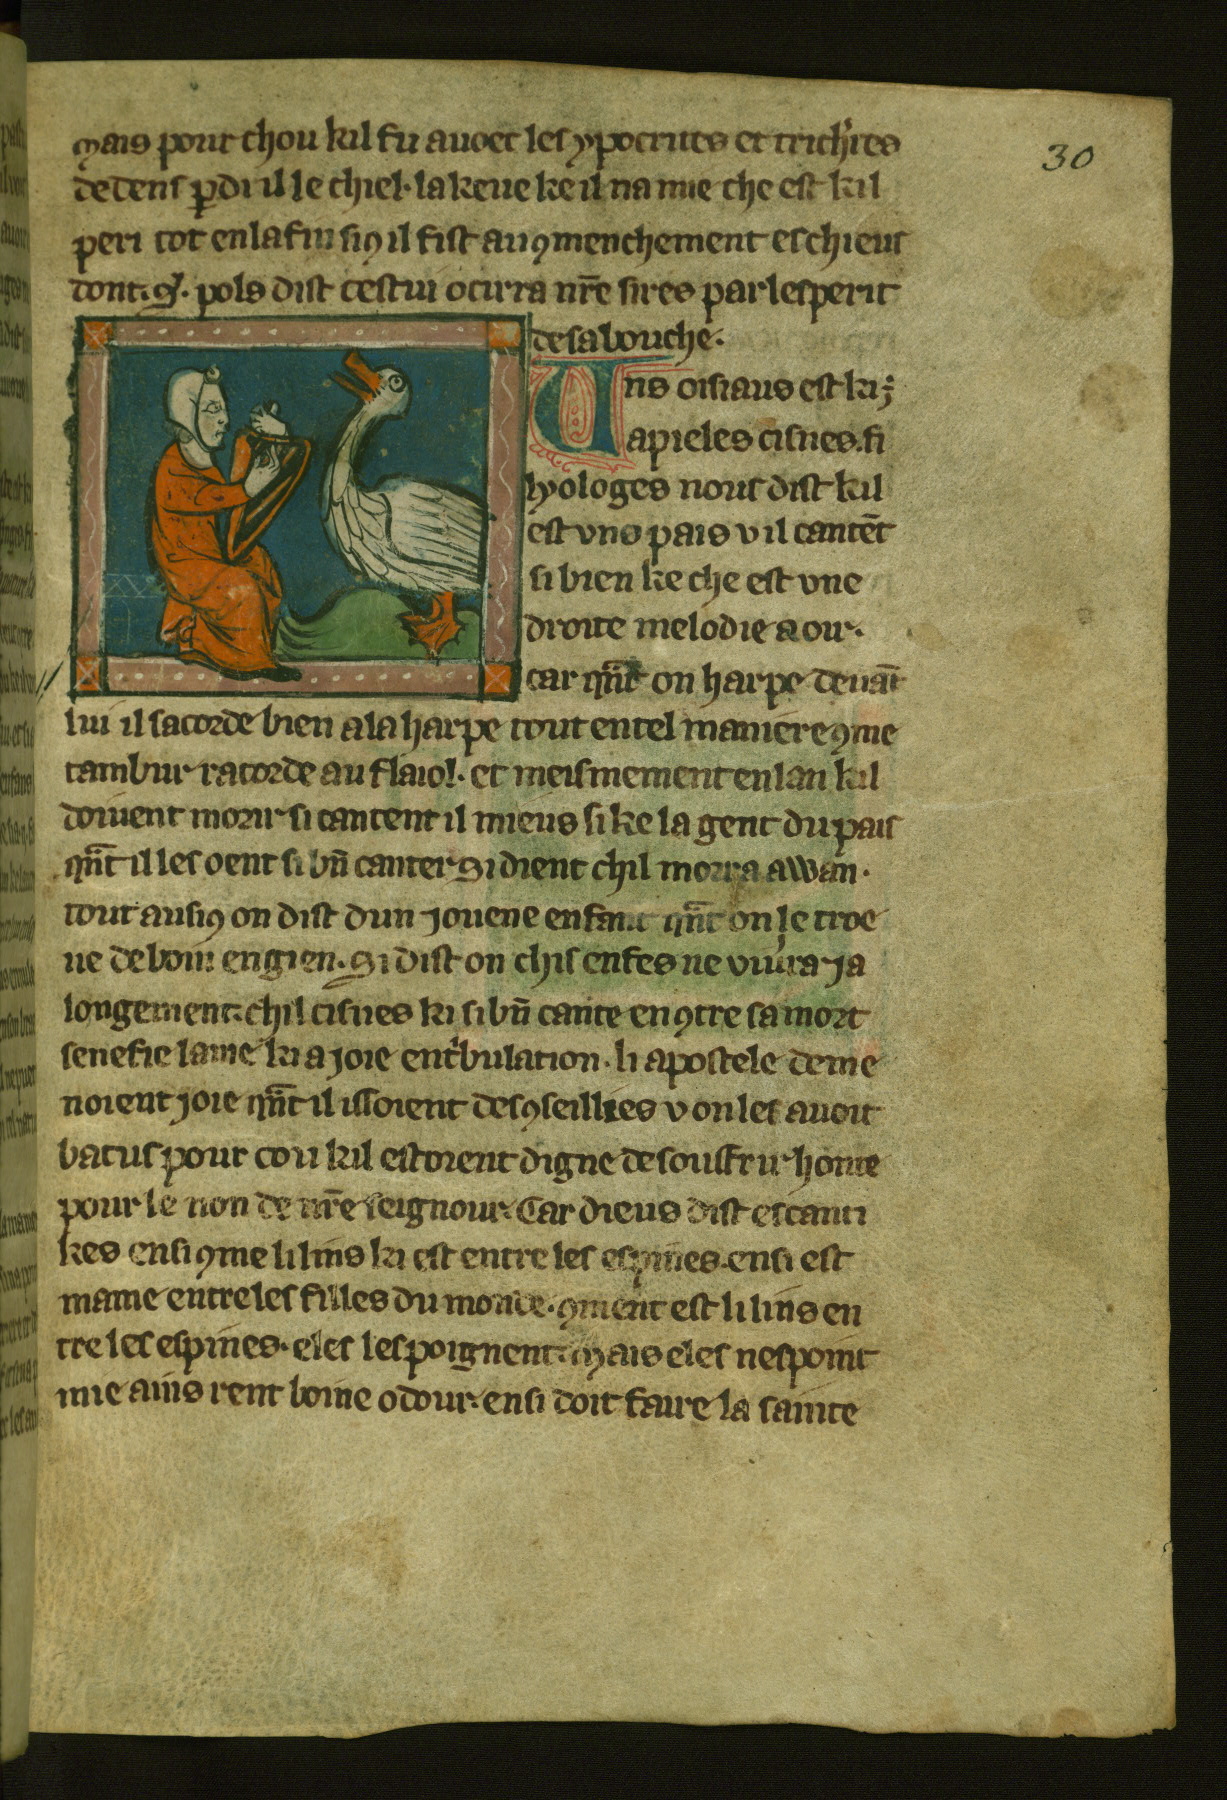 30
mais pour chou kil fu avoec les ypocrites et trich'res
dedens ꝑdi il le chiel· la keue ke il na mie che est kil
peri tot en la fin si ꝯ il fist au ꝯmenchement es chieus
dont· S'· pols dist cestui ocirra nr̃e sires par lesperit
de sa bouche·
Uns oisiaus est ki
apieles cisnes· fi
hyologes nous dist kil
est uns pais v il cantẽt
si bien ke che est vne
droite melodie a oir·
car qñt on harpe deuãt
lui il sacorde bien a la harpe tout en tel maniere ꝯme
tambur racorde au flaiol· et meismement en lan kil
doiuent morir si cantent il mieus si ke la gent du pais
qñt il les oent si bñ canter Si dient chil morra awan·
tout ausi ꝯ on dist dun jouene enfant qñt on le troe
ue de boin engien· Si dist on chis enfes ne viura ja
longement· chil cisnes ki si bñ cante enꝯtre sa mort
senefie lame ki a joie en t'bulation· li apostele deme
noient joie qñt il issoient des ꝯseillies v on les auoit
batus pour cou kil estoient digne de soufrir honte
pour le non de nr̃e seignour· Car dieus dist es canti
kes ensi ꝯme li lins ki est entre les espines· ensi est
mame entre les filles du monde· ꝯment est li lins en
tre les espines· eles les poignent· mais eles nespoint
mie ains rent boine odour· ensi doit faire la sainte